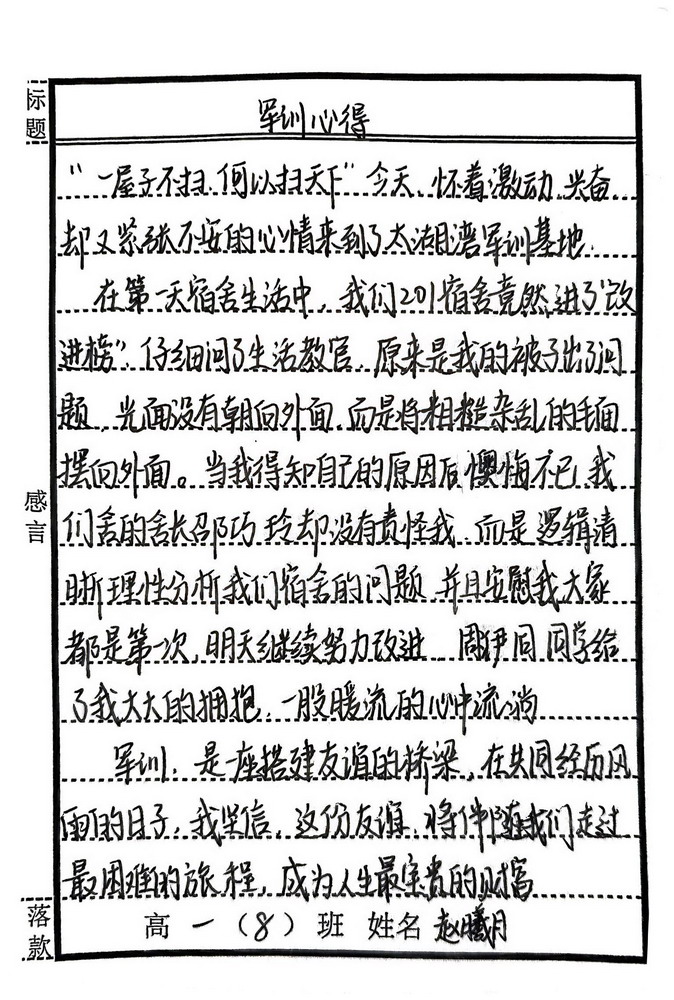 标题
军训心得
“一屋子不扫,何以扫天下”今天,怀着激动、兴奋
却又紧张不安的心情来到了太湖湾军训基地.
在第一天宿舍生活中,我们201宿舍竟然进了“改
进榜”,仔细问了生活教官,原来是我的被子出了问
题,光面没有朝向外面,而是将粗糙杂乱的毛面
摆向外面。当我得知自己的原因后懊悔不已,我
感言
们舍的舍长邵巧玲却没有责怪我,而是逻辑清
晰理性分析我们宿舍的问题,并且安慰我大家
都是第一次,明天继续努力改进,周伊同同学给
了我大大的拥抱,一股暖流的心中流淌
军训,是一座搭建友谊的桥梁,在共同经历风
雨的日子,我坚信,这份友谊,将伴随我们走过
最困难的旅程,成为人生最宝贵的财富
落款
高一(8)班 姓名 赵曦月